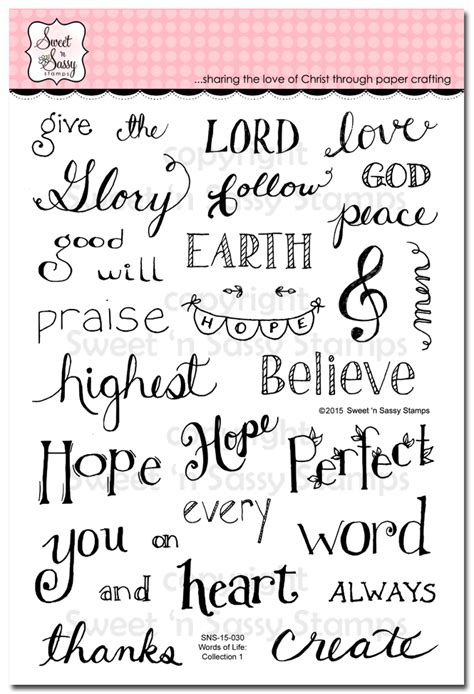 Sweet 'n Sassy stamps
...sharing the love of Christ through paper crafting
give the LORD love
Glory follow GOD
peace
good will EARTH
praise HOPE
highest Believe
©2015 Sweet 'n Sassy Stamps
Hope Hope Perfect
every
you on word
and heart ALWAYS
thanks create
SNS-15-030
Words of Life:
Collection 1
copyright
Sweet 'n Sassy Stamps
copyright
Sweet 'n Sassy Stamps
copyright
Sweet 'n Sassy Stamps
copyright
Sweet 'n Sassy Stamps